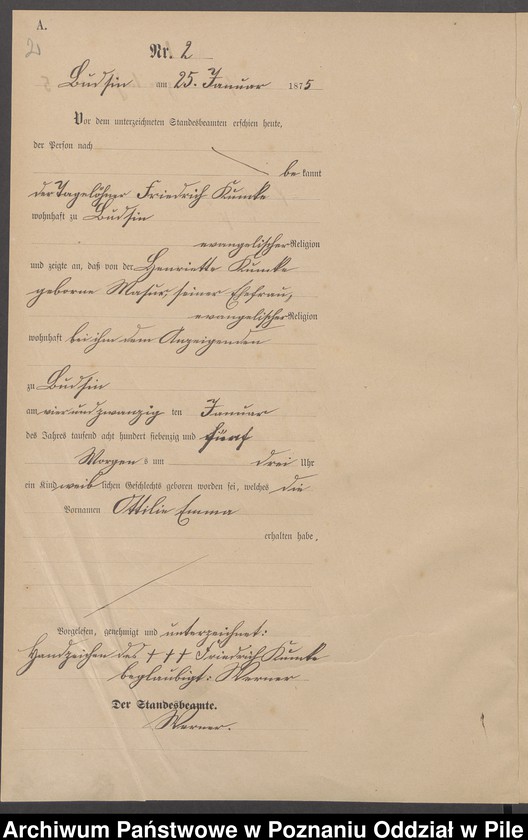 A.
2
Nr. 2
Budsin am 25. Januar 1875
Vor dem unterzeichneten Standesbeamten erschien heute,
der Person nach
bekannt
der Tagelöhner Friedrich Kumke
wohnhaft zu Budsin
evangelischer Religion
und zeigte an, daß von der Henriette Kumke
geborne Masur, seiner Ehefrau,
evangelischer Religion
wohnhaft bei ihm dem Anzeigenden
zu Budsin
am vier und zwanzig ten Januar
des Jahres tausend acht hundert siebenzig und fünf
Morgens um drei Uhr
ein Kind weiblichen Geschlechts geboren worden sei, welches die
Vornamen Ottilie Emma
erhalten habe.
Vorgelesen, genehmigt und unterzeichnet:
Handzeichen des +++ Friedrich Kumke
beglaubigt: Werner
Der Standesbeamte.
Werner.
Archiwum Państwowe w Poznaniu Oddział w Pile